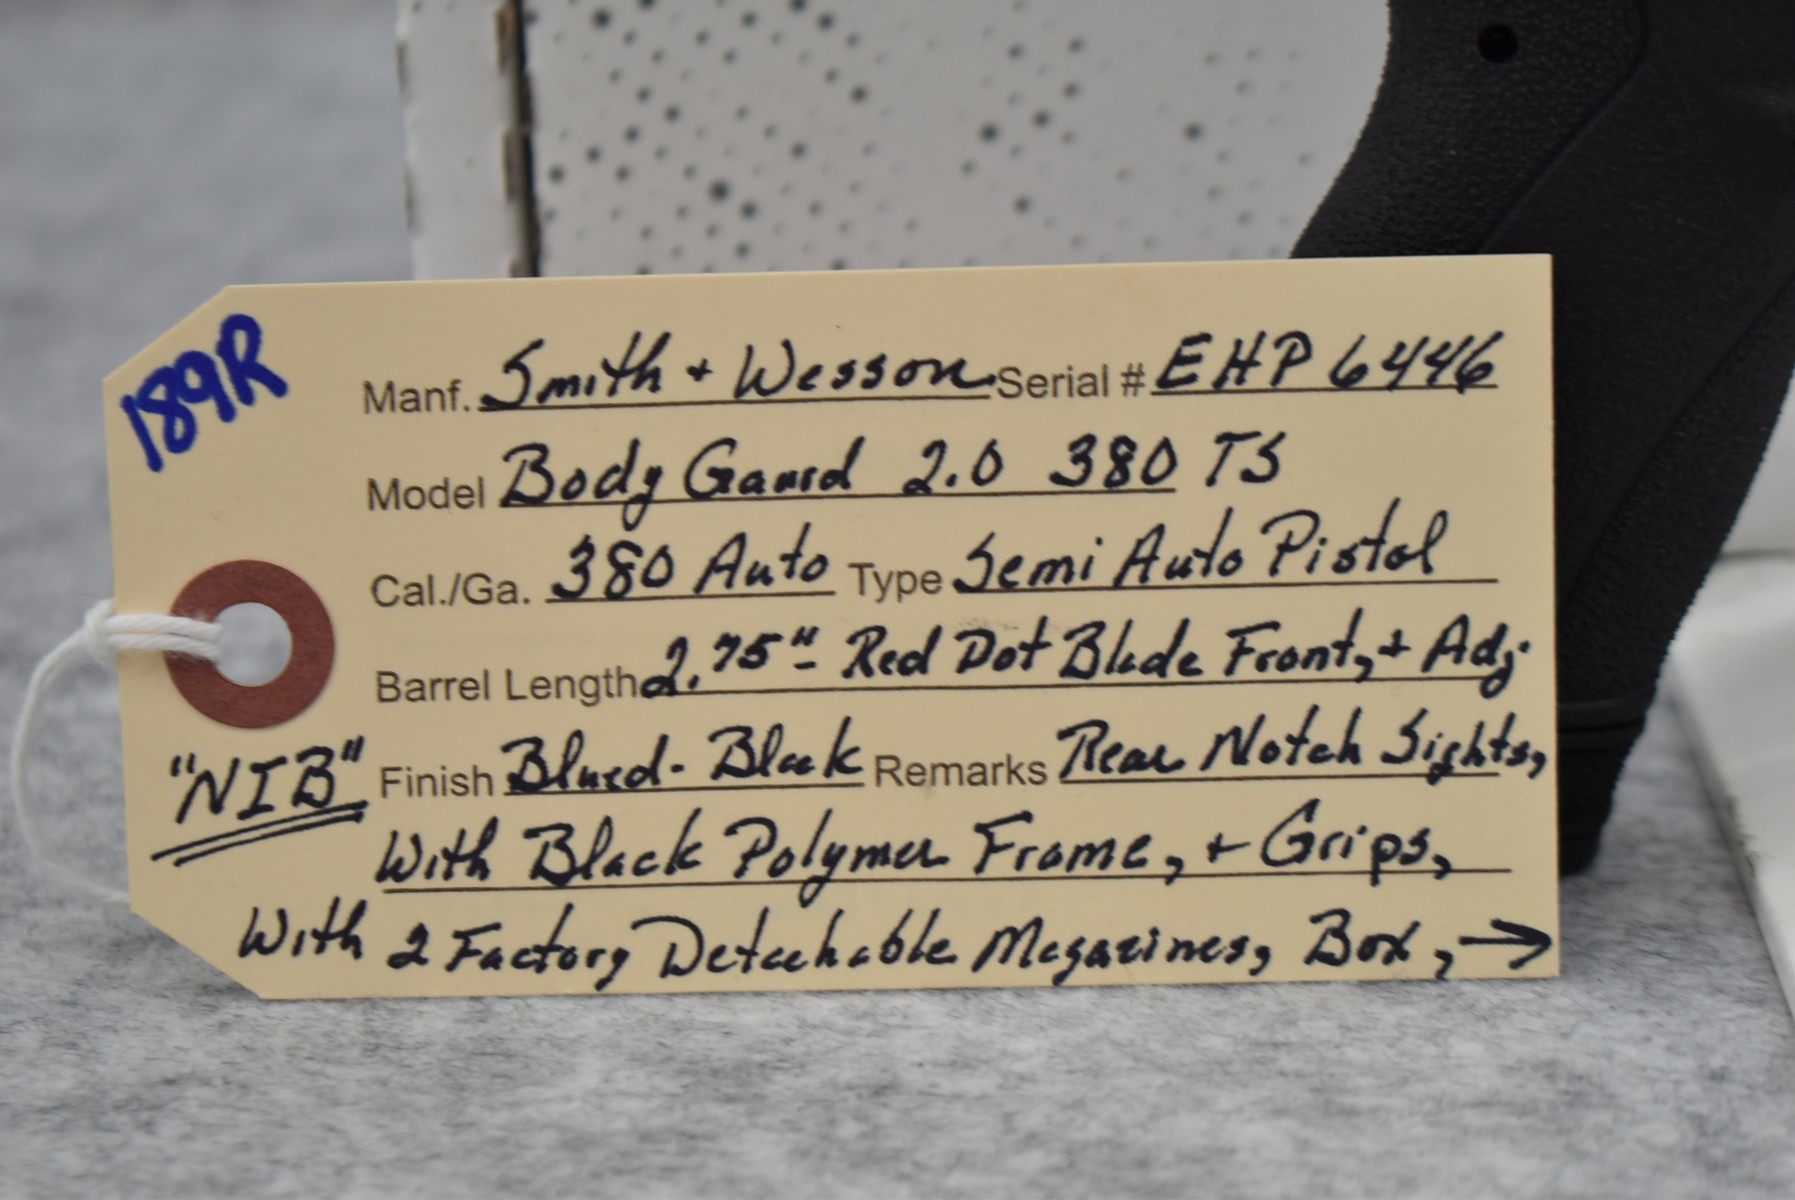 189R
Manf. Smith + Wesson Serial # EHP 6446
Model Body Gaurd 2.0 380 TS
Cal./Ga. 380 Auto Type Semi Auto Pistol
Barrel Length 2.75" - Red Dot Blade Front, + Adj.
"NIB" Finish Blued - Black Remarks Rear Notch Sights,
With Black Polymer Frame, + Grips,
With 2 Factory Detachable Magazines, Box, →